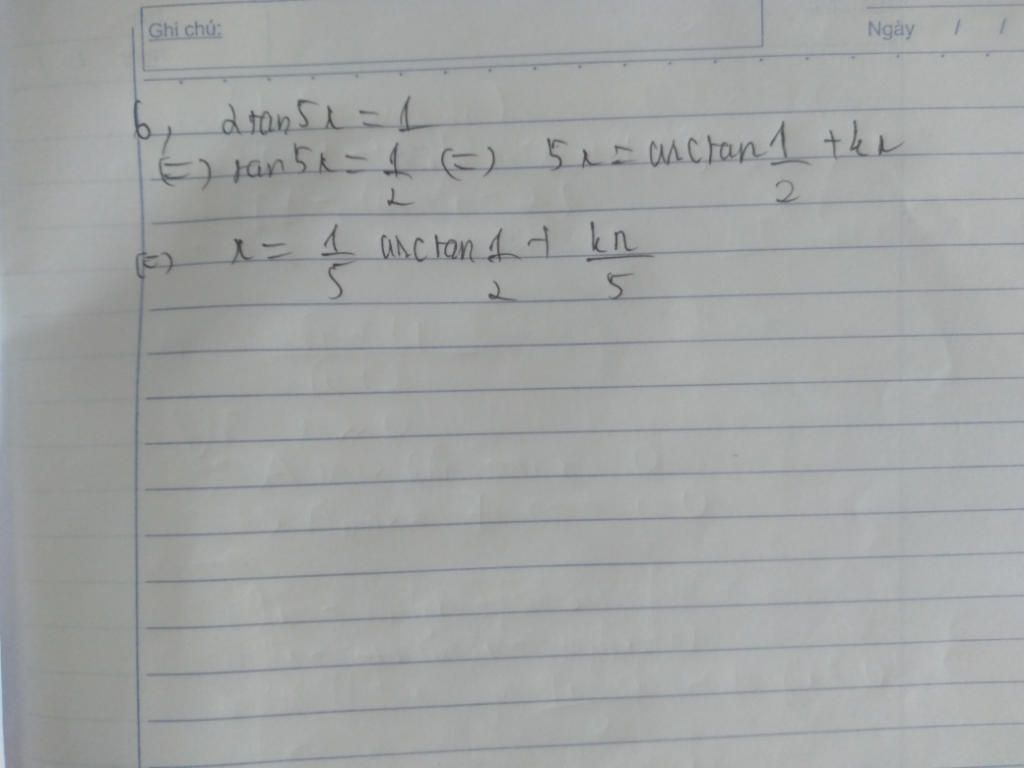 Ghi chú:
Ngày / /
b, 2tan5x = 1
(=) tan5x = 1/2 (=) 5x = arctan 1/2 + kπ
(=) x = 1/5 arctan 1/2 + kπ/5